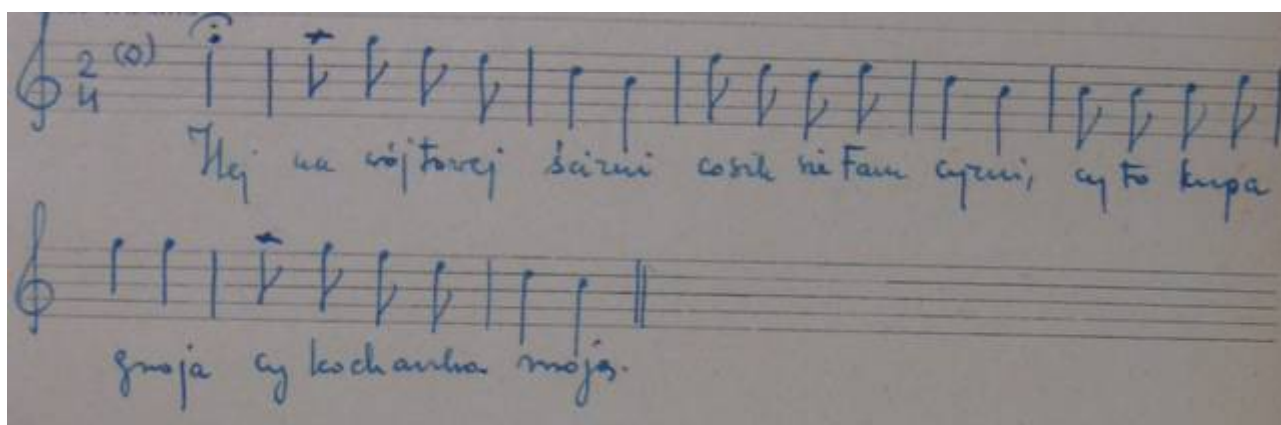 2 4 (o)
Hej na wójtovej ścirni cosik sie tam cyrni, cy to kupa
gnoja cy kochanka moja.